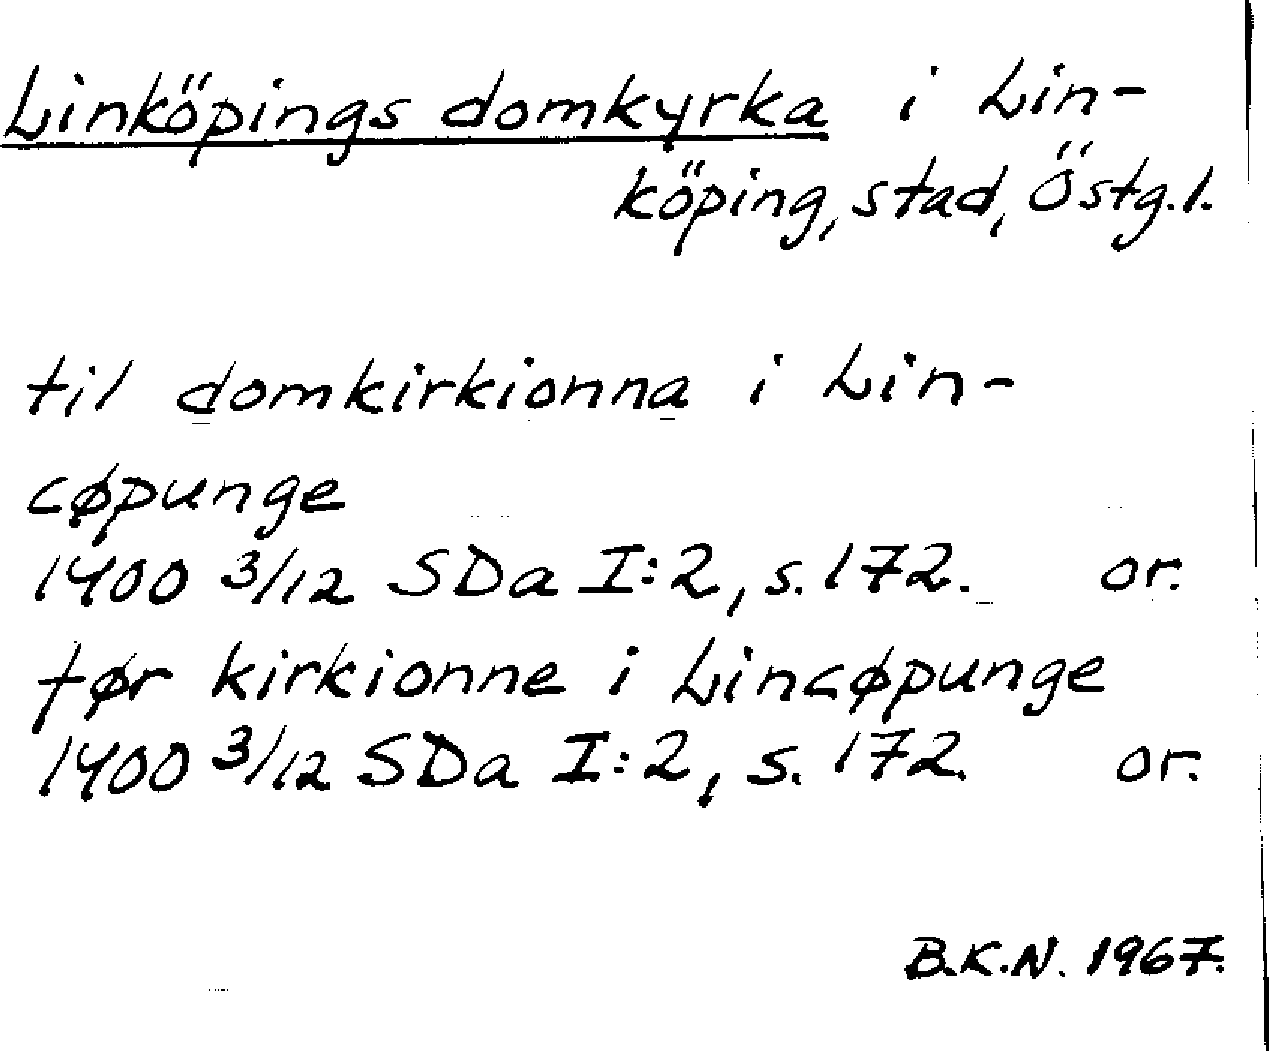 Linköpings domkyrka i Lin-
köping, stad, Östg.l.
til domkirkionna i Lin-
cøpunge
1400 3/12 SDa I:2, s. 172. or.
før kirkionne i Lincøpunge
1400 3/12 SDa I:2, s. 172. or.
B.K.N. 1967.